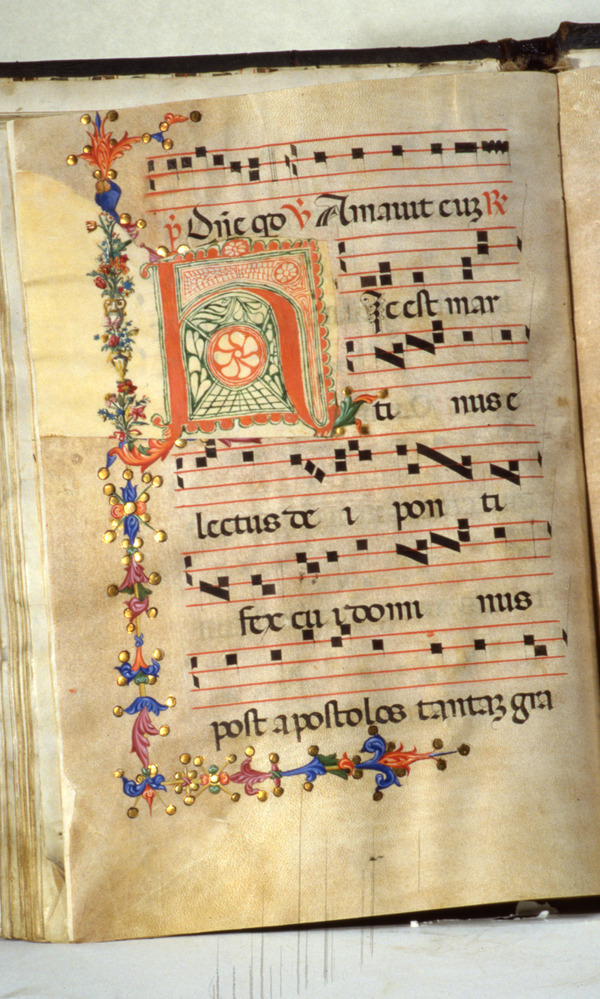 p̄ Dñe qo V̄ Amauit euʒ R̄
Hic est mar
ti nus e
lectus de i pon ti
fex cu i domi nus
post apostolos tantaʒ gra